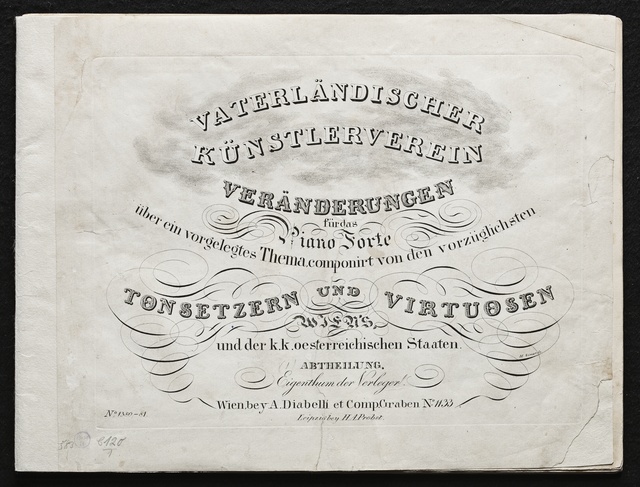 VATERLÄNDISCHER
KÜNSTLERVEREIN
VERÄNDERUNGEN
für das
Piano Forte
über ein vorgelegtes Thema, componirt von den vorzüglichsten
TONSETZERN UND VIRTUOSEN
WIEN'S
und der k.k. oesterreichischen Staaten.
ABTHEILUNG.
Eigenthum der Verleger.
Wien, bey A. Diabelli et Comp. Graben No 1133
Leipzig bey H. A. Probst.
6128